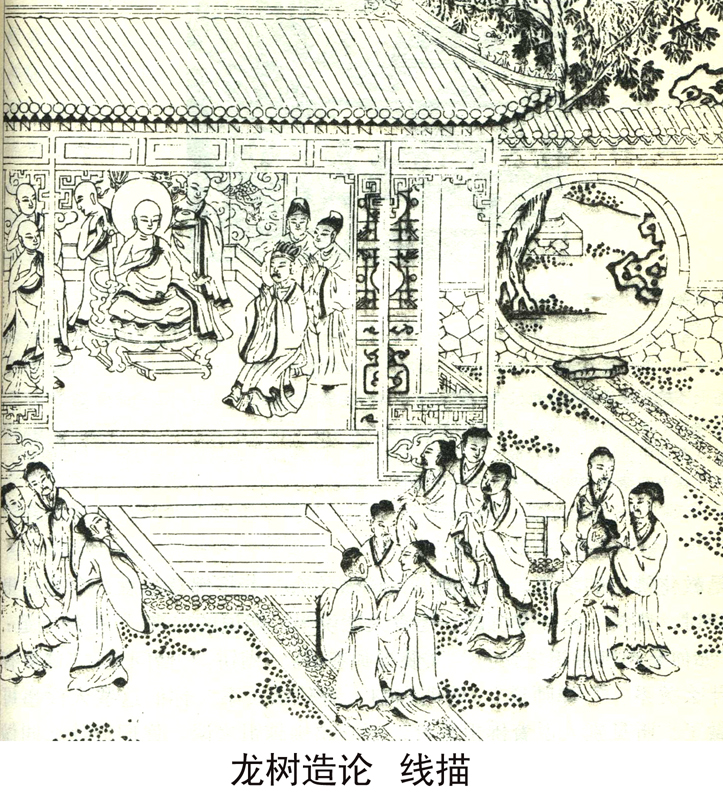 龙树造论 线描